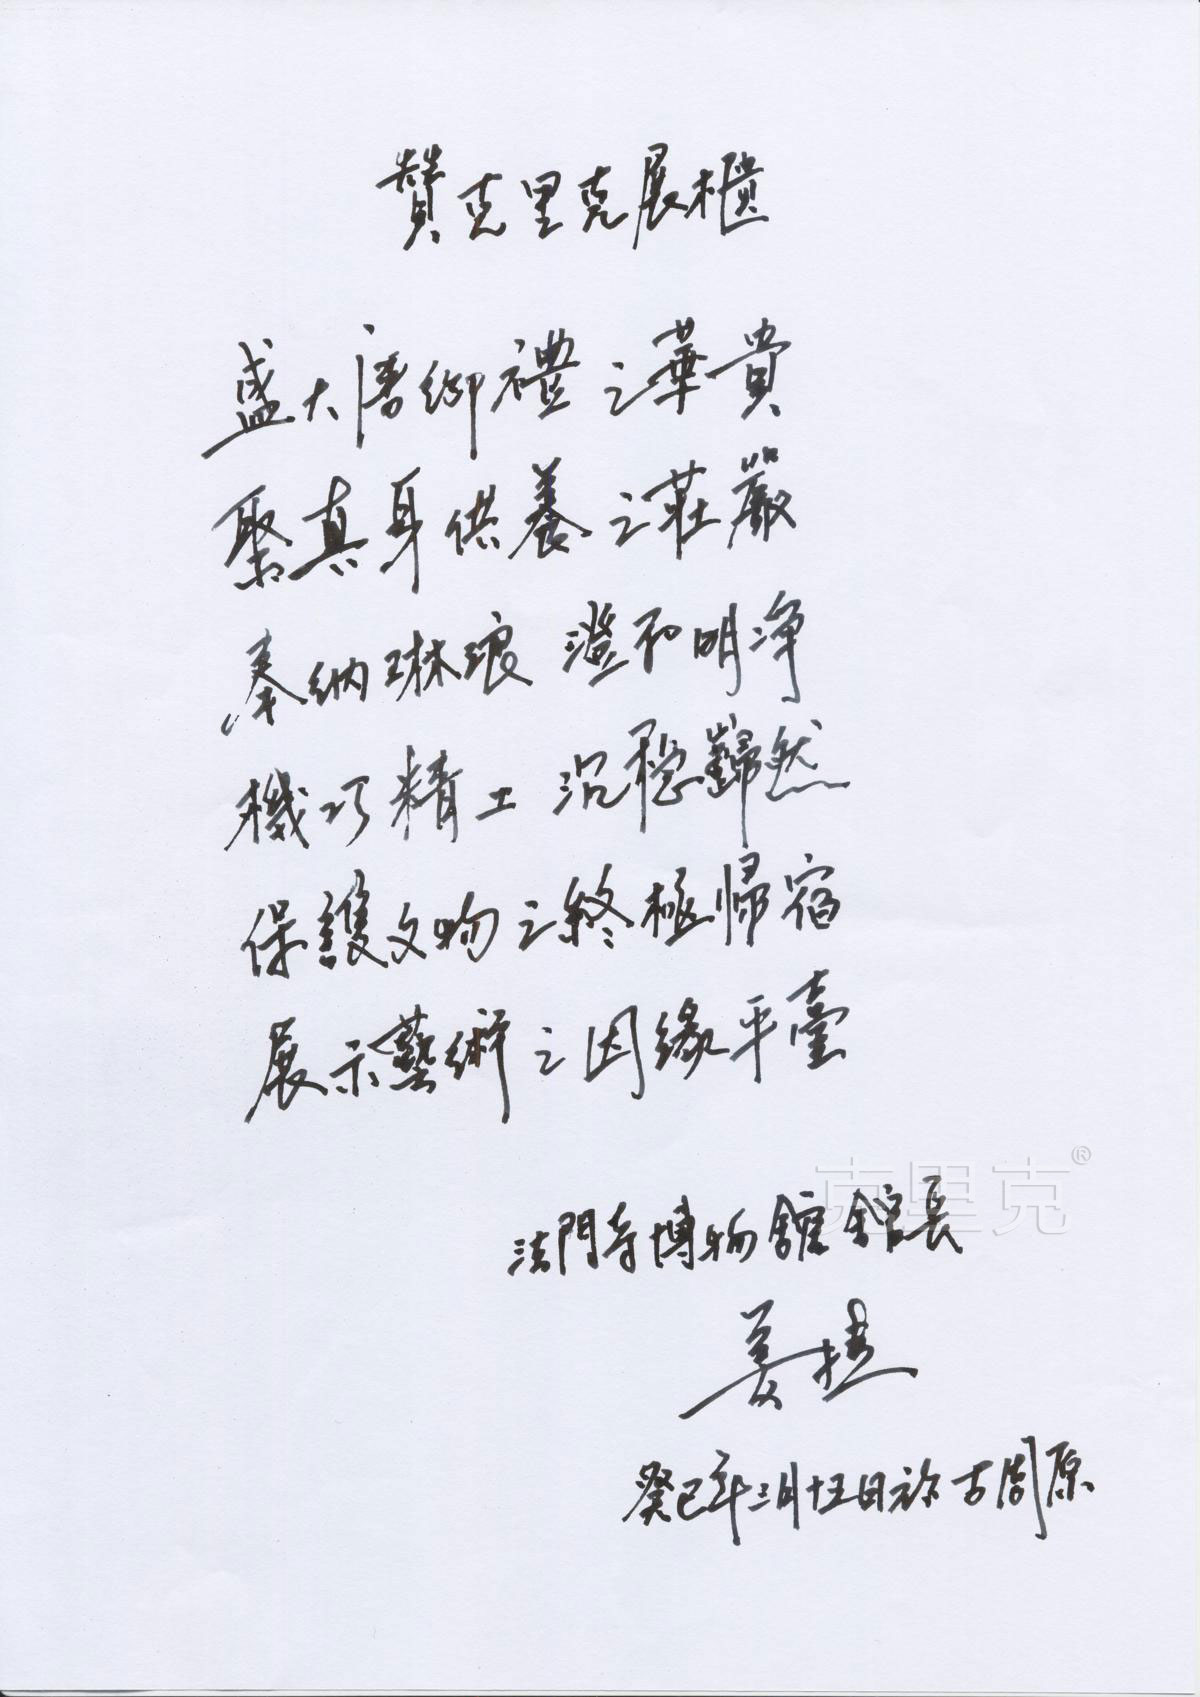 贊克里克展櫃
盛大唐御禮之華貴
聚真身供養之莊嚴
奉納琳琅 澄和明净
機巧精工 沉穩巋然
保護文物之終極歸宿
展示藝術之因緣平臺
克里克®
法門寺博物館館長
姜捷
癸巳年三月十五日於古周原